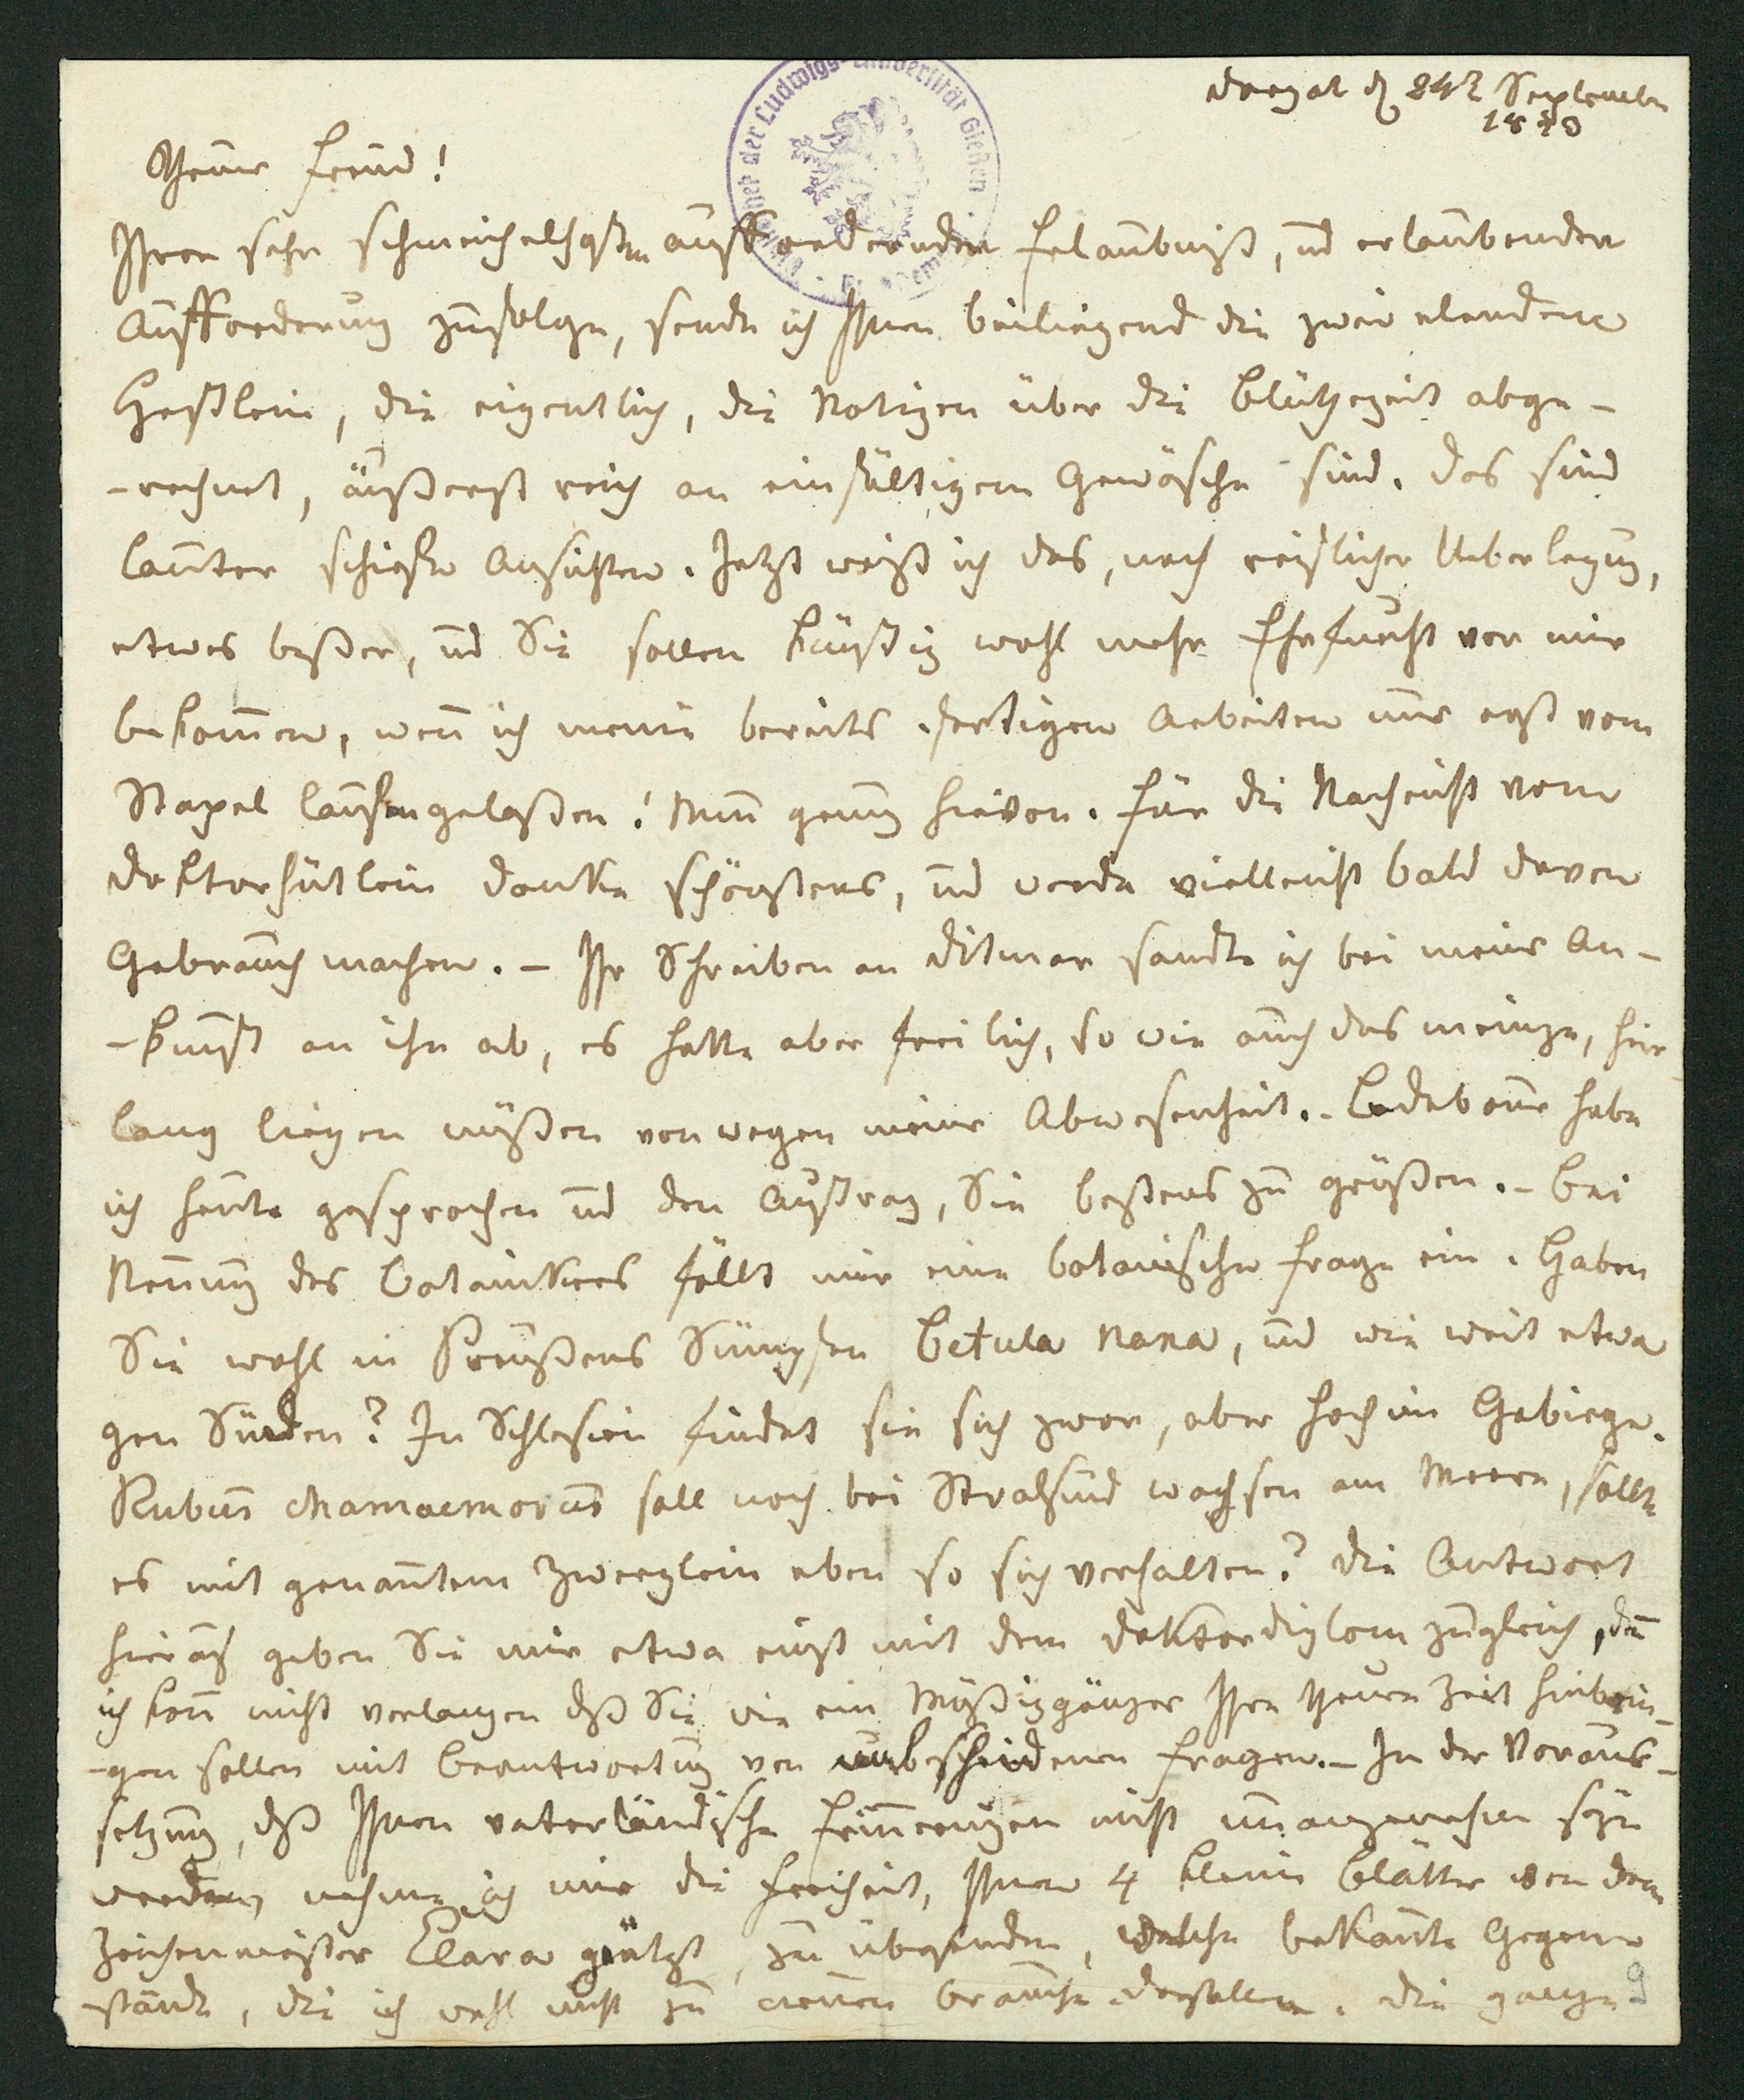 Dorpat d 24t September
18
Theurer Freund!
Ihrer sehr schmeichelhaften auffordernden Erlaubniß, und erlaubenden
Aufforderung zufolge, sende ich Ihnen beiliegend die zwei elenden
Heftlein, die eigentlich, die Notizen über die Blüthezeit abge-
-rechnet, äußerst reich an einfältigem Gewäsche sind. Das sind
lauter schiefe Ansichten. Jetzt weiß ich das, nach reiflicher Ueberlegung,
etwas beßer, und Sie sollen künftig wohl mehr Ehrfurcht vor mir
bekommen, wenn ich meine bereits fertigen Arbeiten nur erst vom
Stapel laufen gelaßen! Nun genug hievon. Für die Nachricht vom
Doktorhütlein danke schönstens, und werde vielleicht bald davon
Gebrauch machen. – Ihr Schreiben an Ditmar sandte ich bei meiner An-
-kunft an ihn ab, es hatte aber freilich, so wie auch das meinige, hier
lang liegen müßen von wegen meiner Abwesenheit. – Ledebour habe
ich heute gesprochen und den Auftrag, Sie bestens zu grüßen. – Bei
Nennung des Botanikers fällt mir eine botanische Frage ein. Haben
Sie wohl in Preußens Sümpfen Betula nana, und wie weit etwa
gen Süden? In Schlesien findet sie sich zwar, aber hoch im Gebirge.
Rubus chamaemorus soll noch bei Stralsund wachsen am Meere, sollte
es mit genanntem Zwerglein eben so sich verhalten? Die Antwort
hierauf geben Sie mir etwa einst mit dem Doktordiplom zugleich, denn
ich kann nicht verlangen daß Sie wie ein Müßiggänger Ihre theure Zeit hinbrin-
-gen sollen mit Beantwortung von unbescheidenen Fragen. – In der Voraus-
setzung, daß Ihnen vaterländische Erinnerungen nicht unangenehm seyn
werden, nehme ich mir die Freiheit, Ihnen 4 kleine Blätter von dem
Zeichenmeister Clara geätzt, zu übersenden, welche bekannte Gegen
-stände, die ich wohl nicht zu nennen brauche darstellen. Die ganze
9